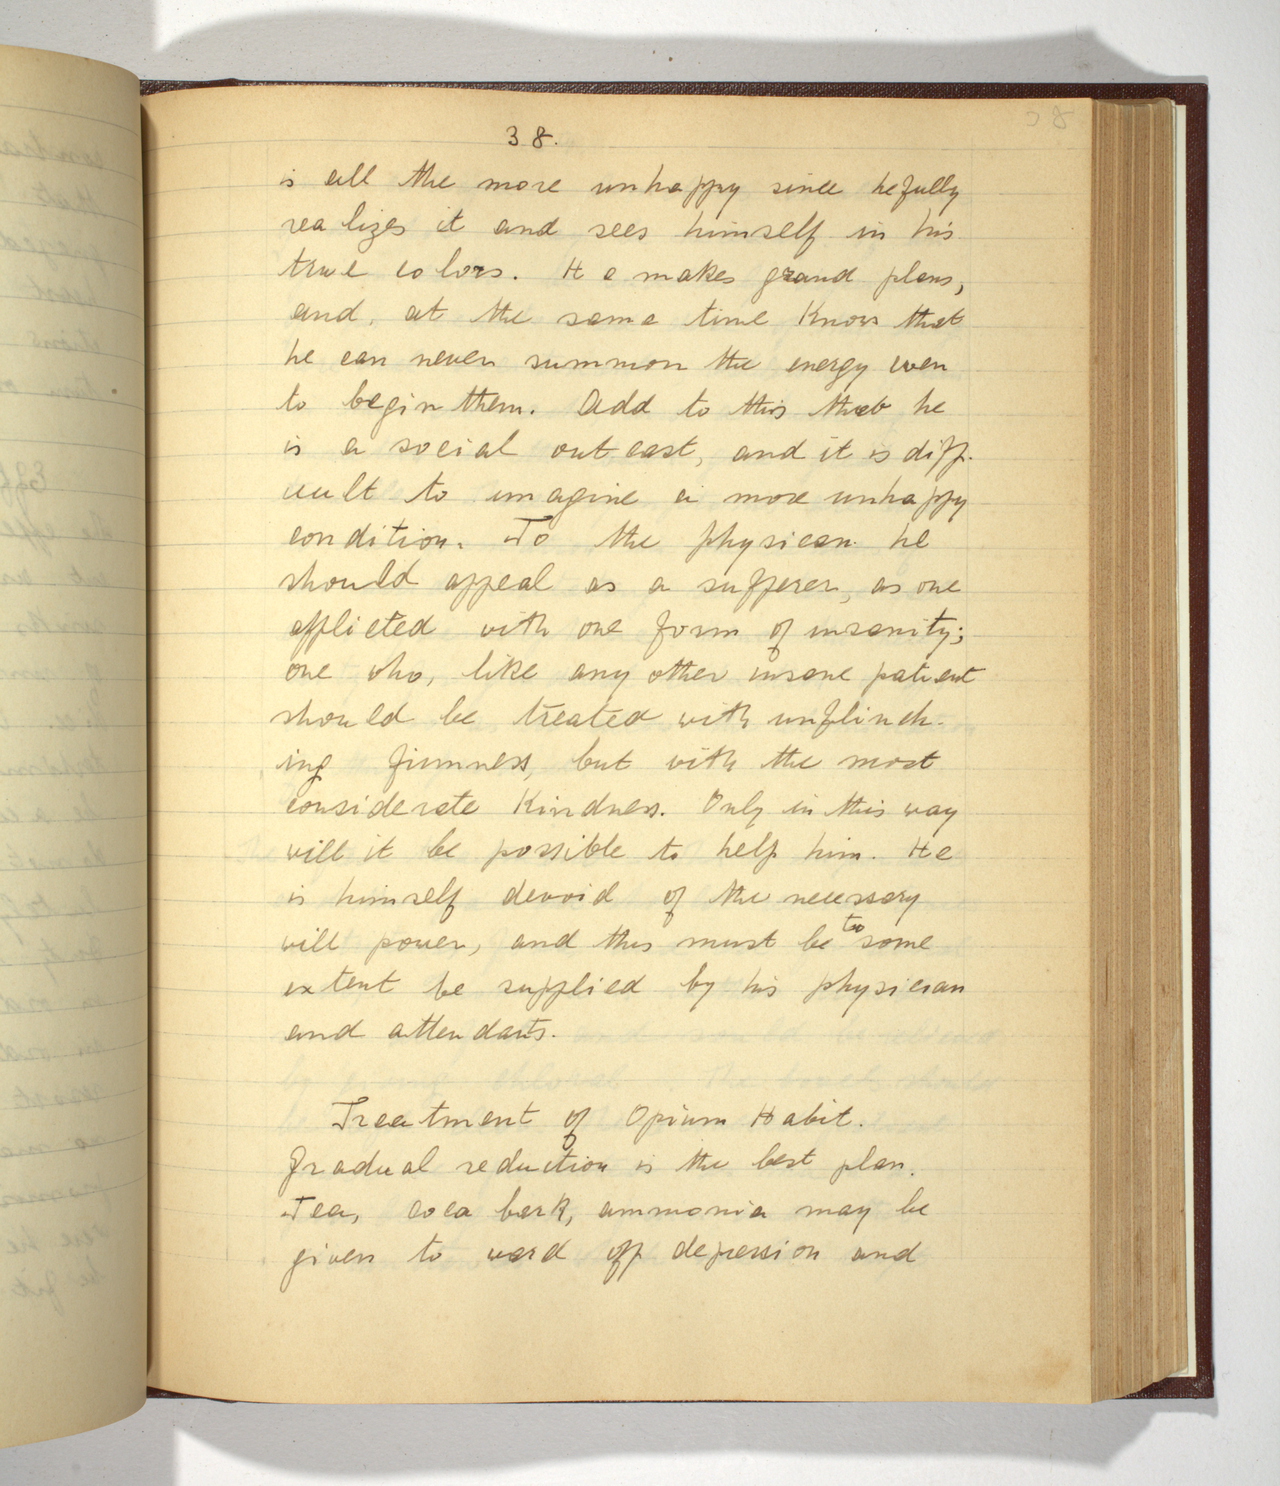 38.
38
is all the more unhappy since he fully
realizes it and sees himself in his
true colors. He makes grand plans,
and, at the same time knows that
he can never summon the energy even
to begin them. Add to this that he
is a social outcast, and it is diff-
icult to imagine a more unhappy
condition. To the physican he
should appeal as a sufferer, as one
afflicted with one form of insanity;
one who, like any other insane patient
should be treated with unflinch-
ing firmness, but with the most
considerate kindness. Only in this way
will it be possible to help him. He
is himself devoid of the necessary
will power, and this must be to some
extent be supplied by his physician
and attendants.
Treatment of Opium Habit.
Gradual reduction is the best plan.
Tea, coca bark, ammonia may be
given to ward off depression and